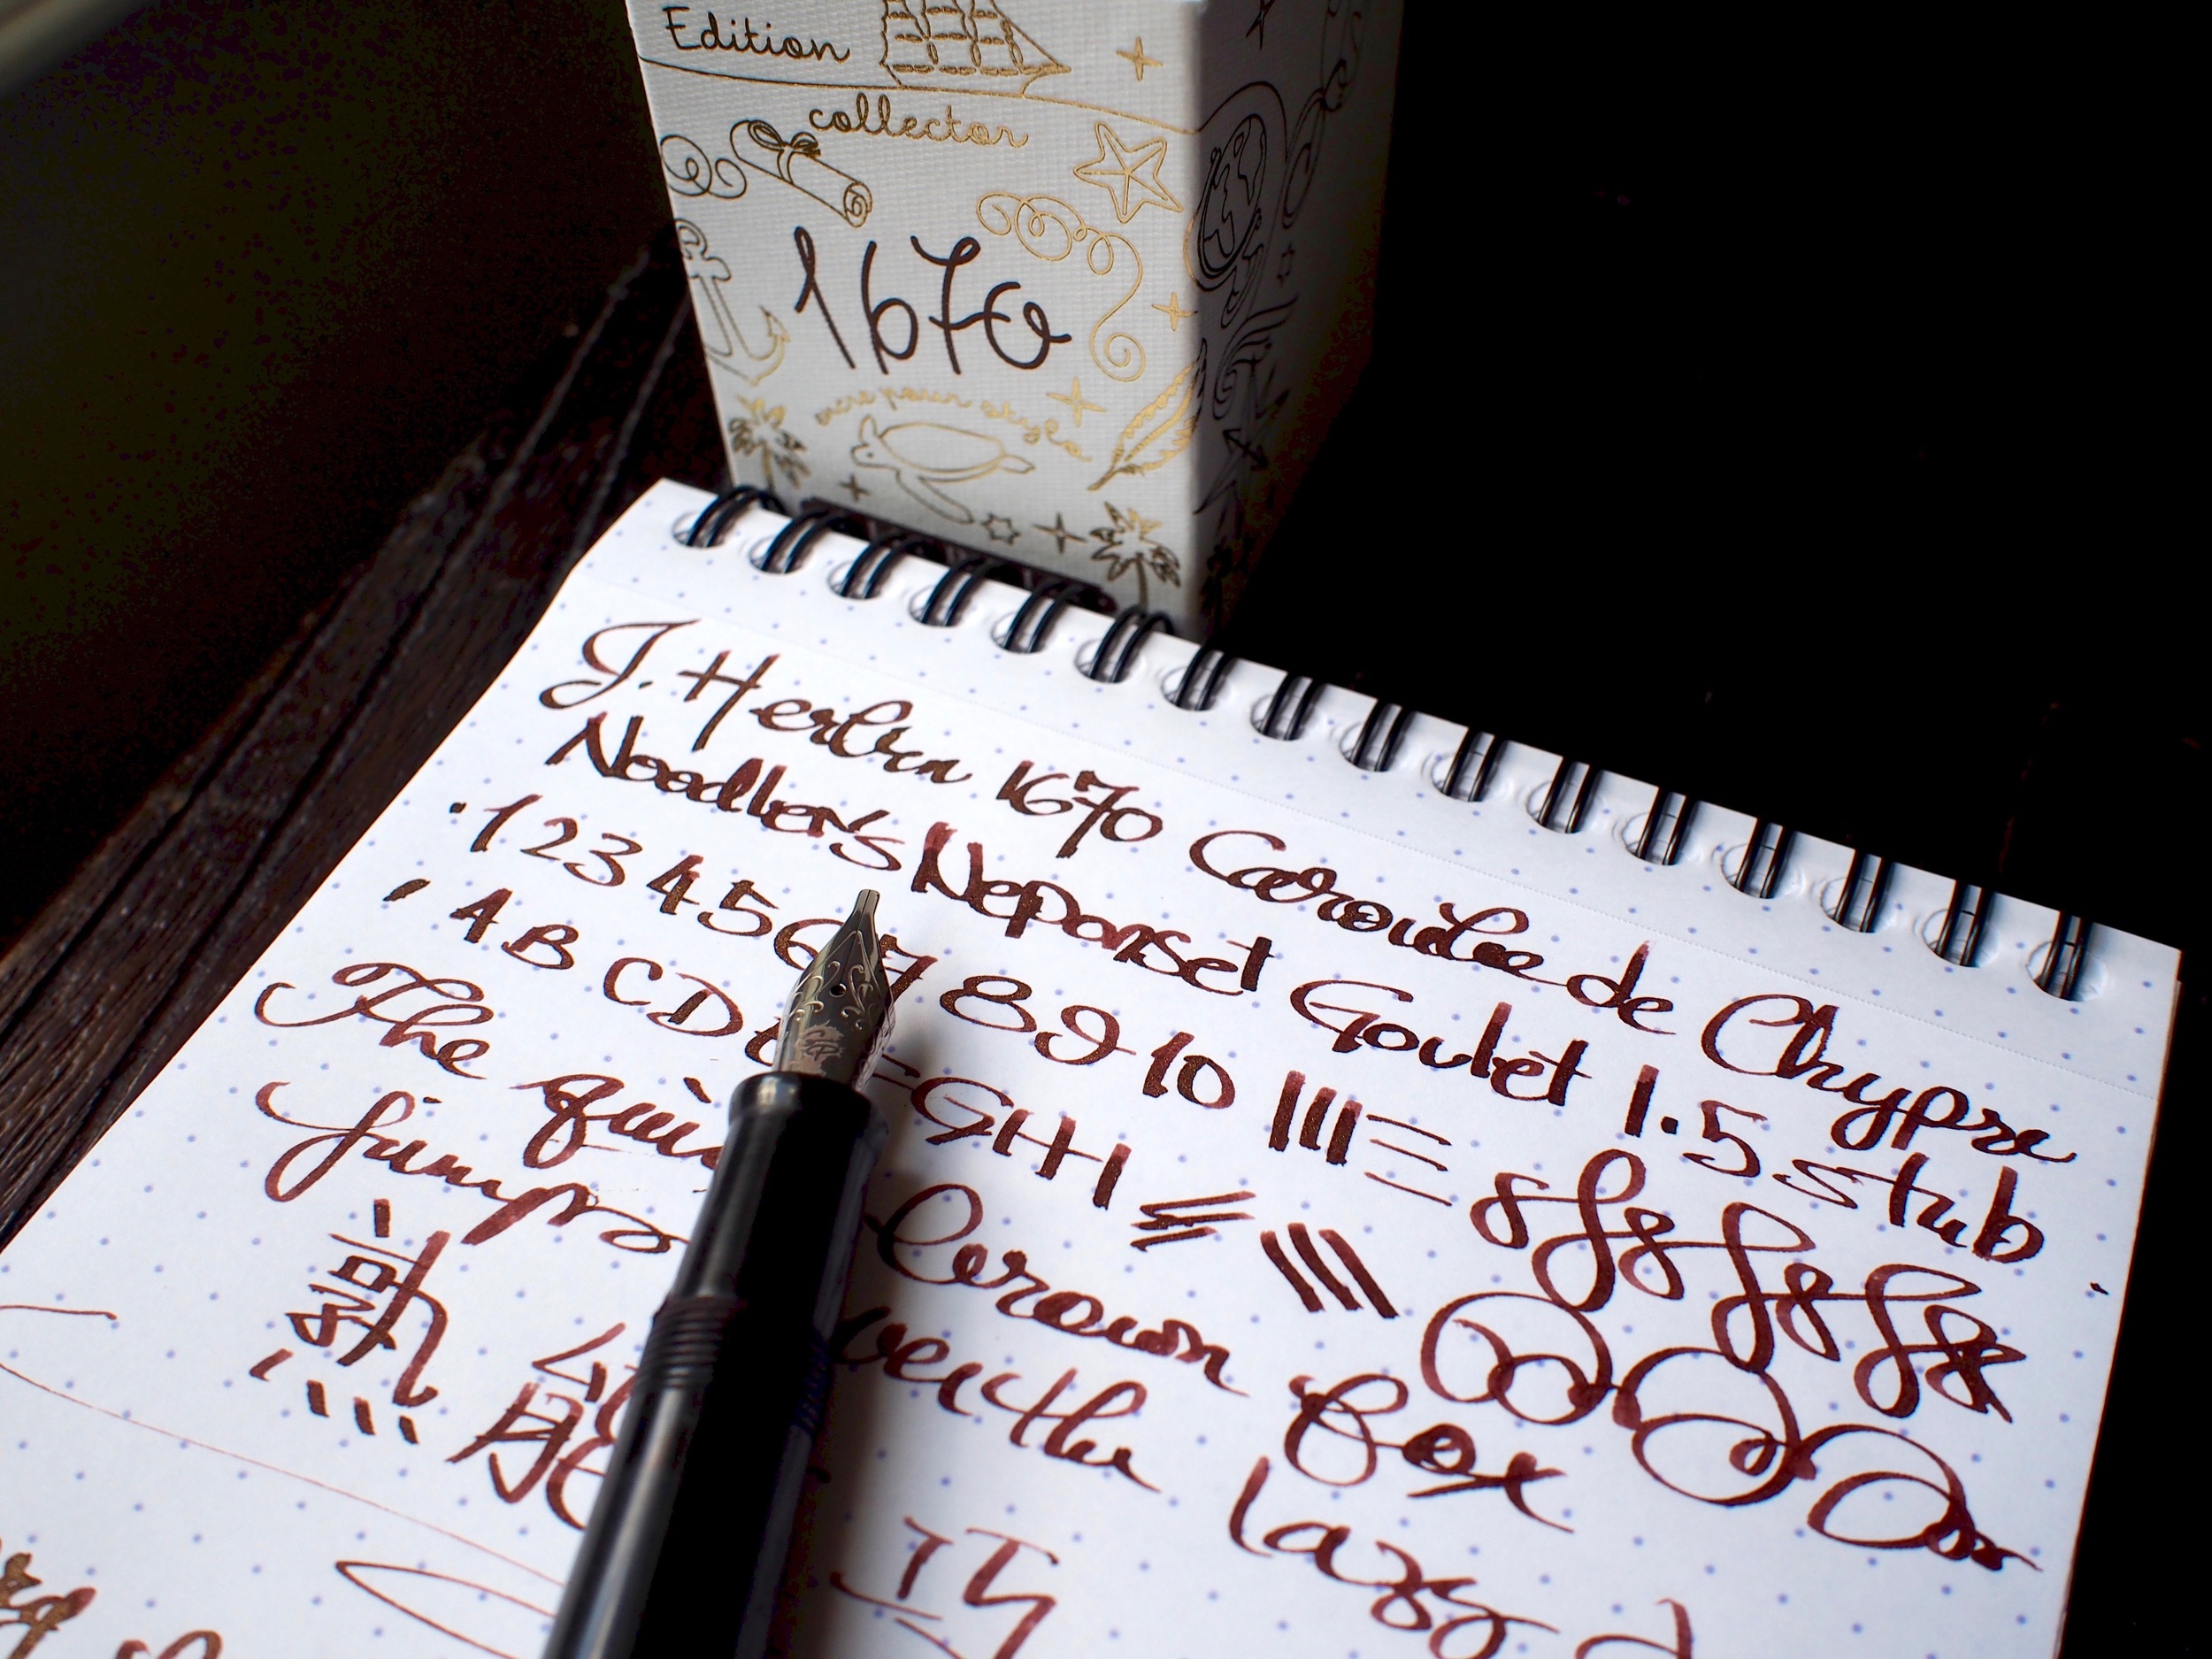 Edition
collector
1670
encre pour stylo
J. Herbin 1670 Caroube de Chypre
Noodler's Neponset Goulet 1.5 Stub
1 2 3 4 5 6 7 8 9 10
A B C D G H I
The brown fox
jumps the lazy
熟 能 巧